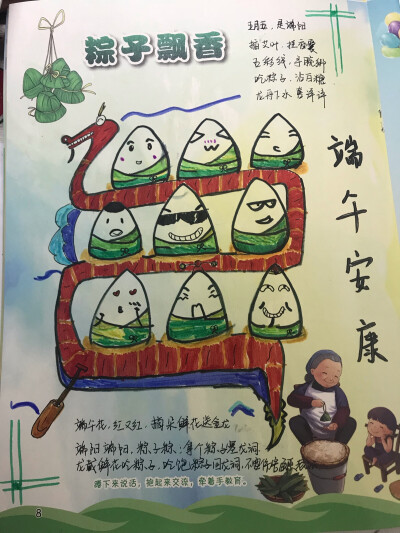 粽子飘香
五月五，是端阳
插艾叶，挂香囊
五彩线，手腕绑
吃粽子，沾白糖
龙舟下水喜洋洋
端午安康
端午花，红又红，摘朵鲜花送金龙
端阳端阳，粽子粽，每个粽子龙洞
龙戴鲜花吃粽子，吃饱粽子回龙洞，不要作怪
蹲下来说话，抱起来交流，牵着手教育。
8